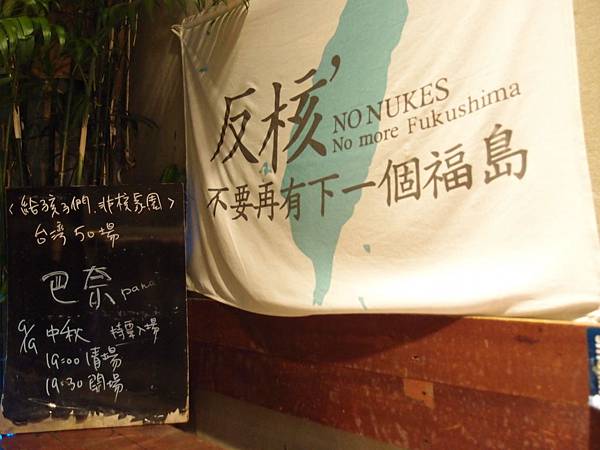 反核'
NO NUKES
No more Fukushima
不要再有下一個福島
〈給孩子們.非核家園〉
台湾50場
巴奈 pana
9/19 中秋 持票入場
19:00 清場
19:30 開場